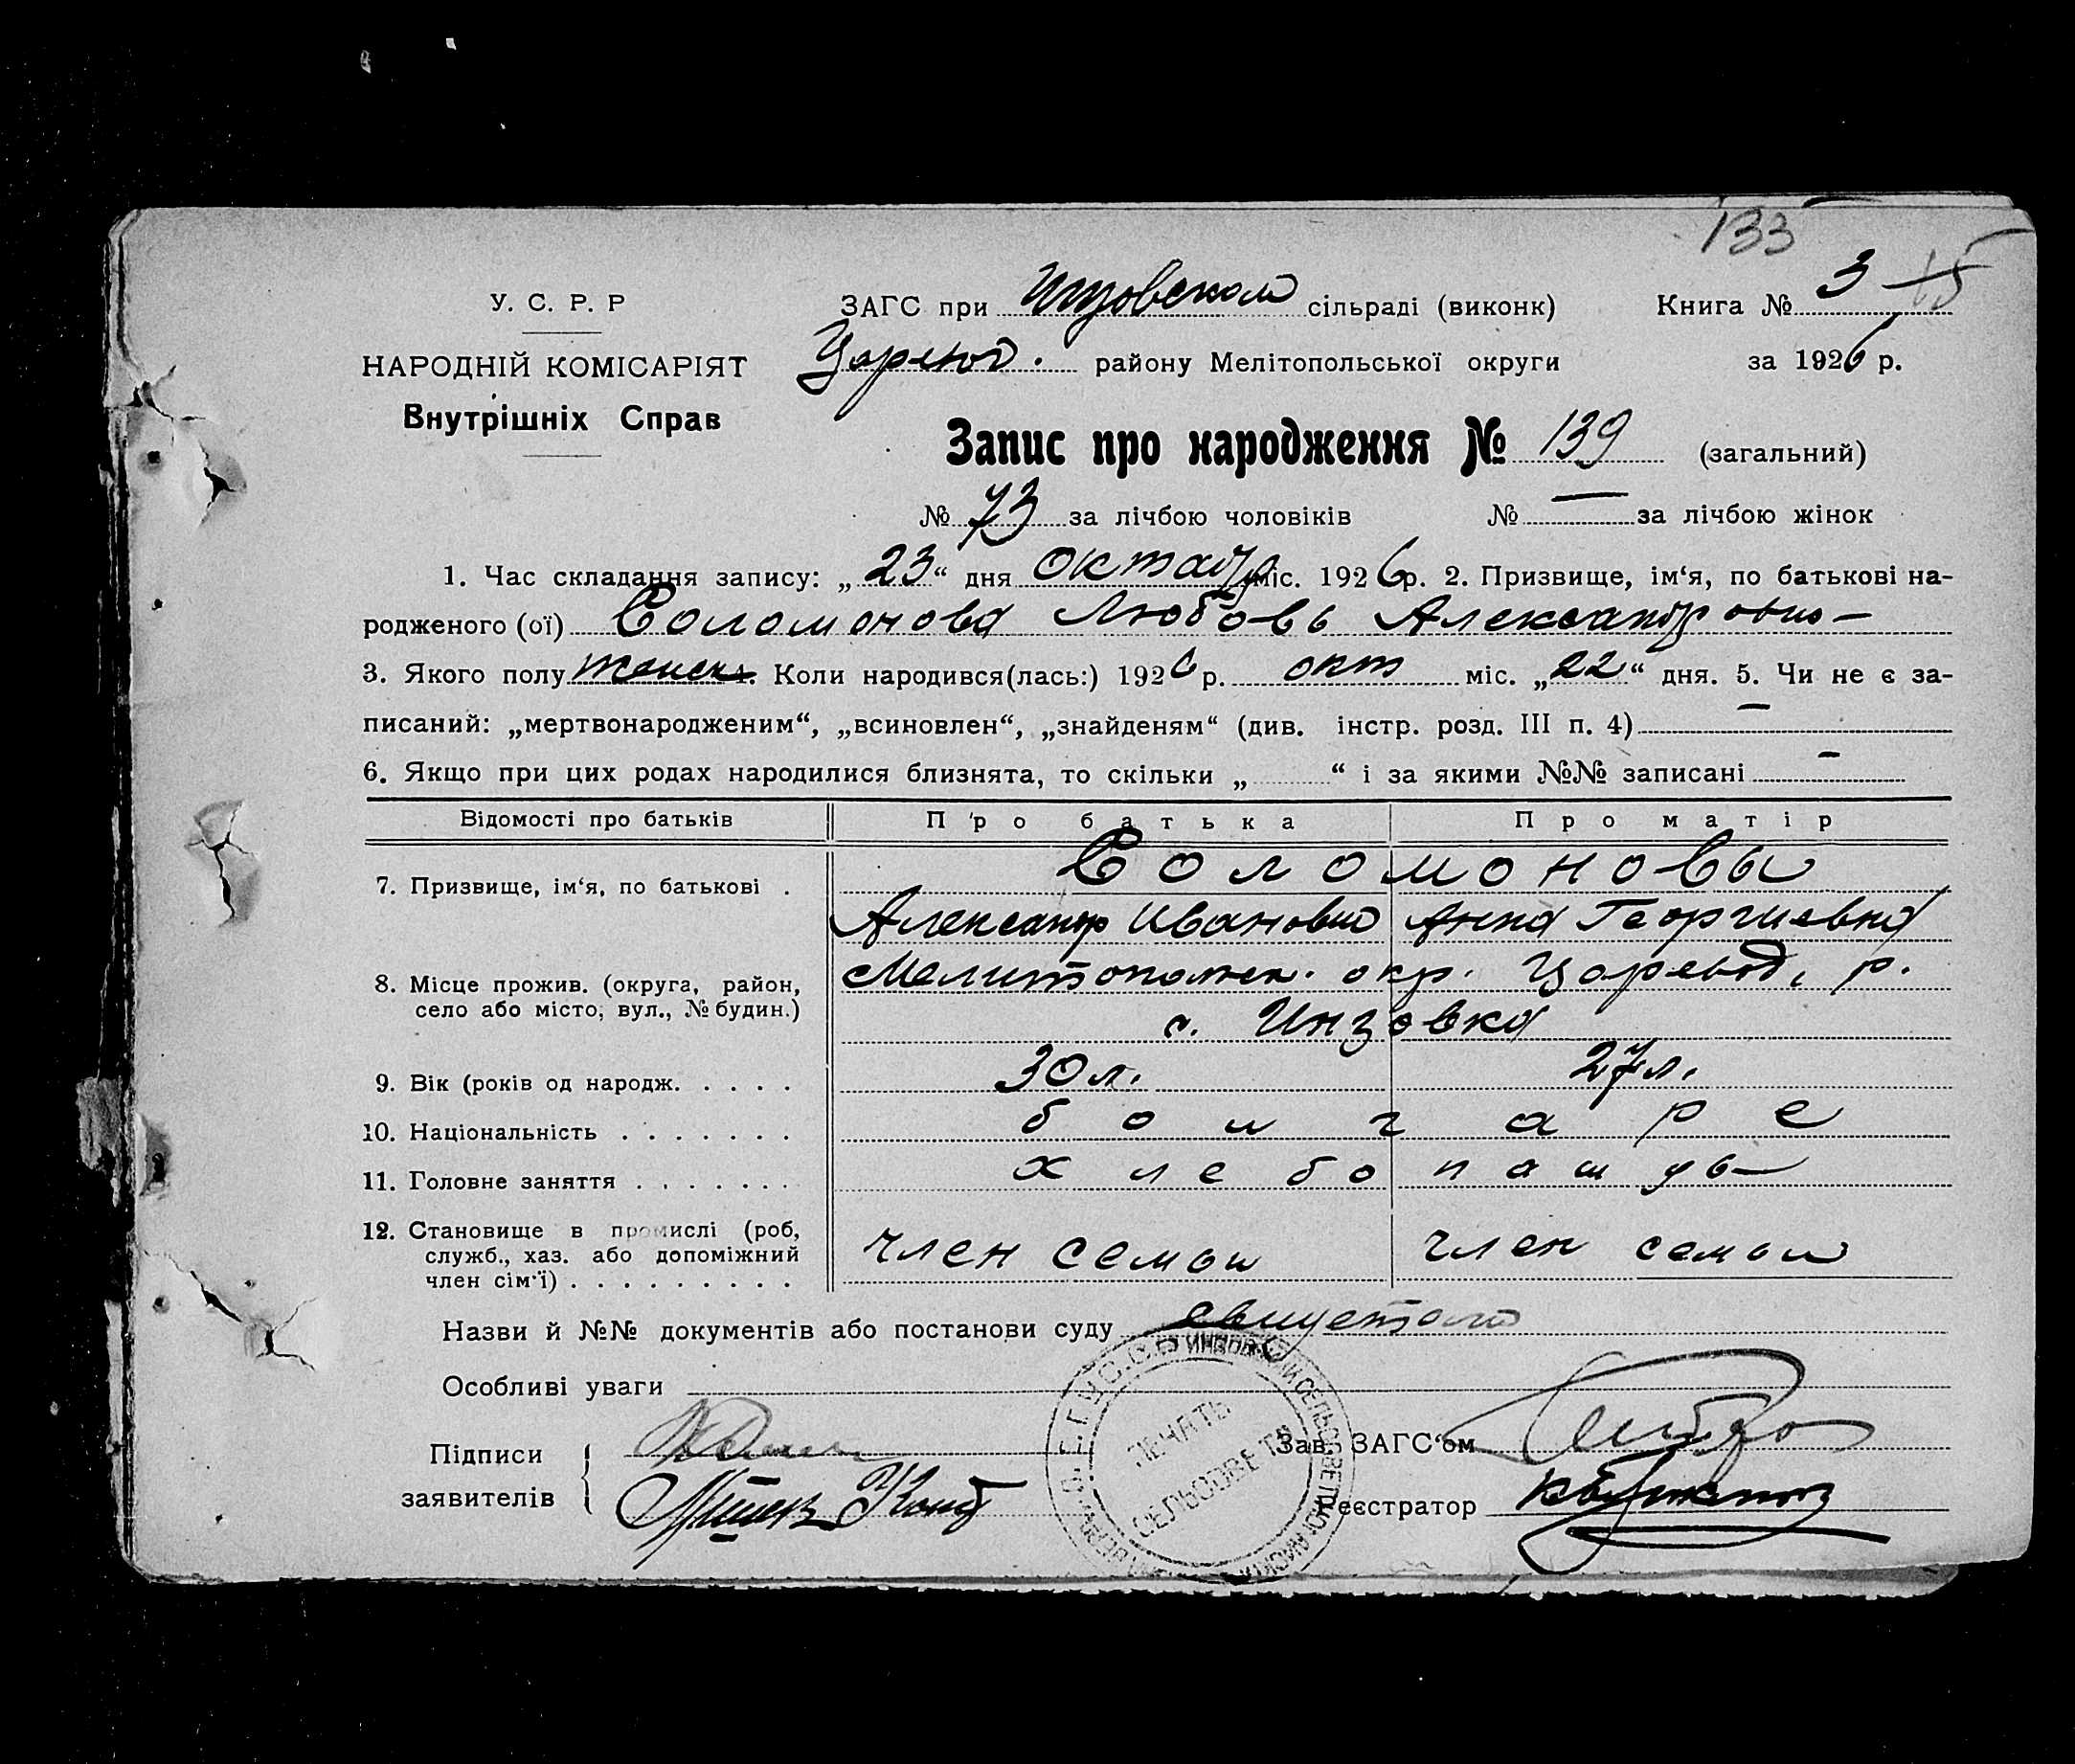 133
У. С. Р. Р
ЗАГС при Инзовском сільраді (виконк)
Книга № 3 15
НАРОДНІЙ КОМІСАРІЯТ
Царевод. району Мелітопольської округи
за 1926 р.
Внутрішніх Справ
Запис про народження № 139 (загальний)
№ 73 за лічбою чоловіків № — за лічбою жінок
1. Час складання запису: „23“ дня октабр міс. 1926 р. 2. Призвище, ім‘я, по батькові на-
родженого (ої) Соломонова Любовь Александровно —
3. Якого полу женск 4. Коли народився(лась:) 1926 р. окт міс. „22“ дня. 5. Чи не є за-
писаний: „мертвонародженим“, „всиновлен“, „знайденям“ (див. інстр. розд. III п. 4) —
6. Якщо при цих родах народилися близнята, то скільки „ “ і за якими №№ записані —
Відомості про батьків Про батька Про матір
7. Призвище, ім‘я, по батькові . Соломоновы
Александр Иванович Анна Георгиевна
8. Місце прожив. (округа, район, село або місто, вул., № будин.) Мелитопольск. окр. Царевод, р.
с. Инзовка
9. Вік (років од народж. . . . . 30 л. 27 л.
10. Національність . . . . . . . болгаре
11. Головне заняття . . . . . . . хлебопашць —
12. Становище в промислі (роб,
служб., хаз. або допоміжний член семьи член семьи
член сім‘ї) . . . . . . . . .
Назви й №№ документів або постанови суду
Особливі уваги
Підписи
заявителів
Зав. ЗАГС‘ом
Реєстратор
ПЕЧАТЬ
СЕЛЬСОВЕТА